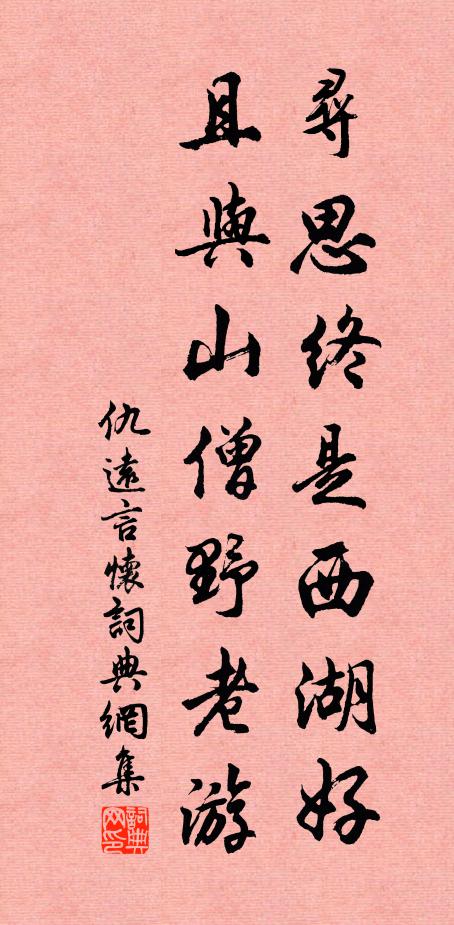 尋思終是西湖好
且與山僧野老游
仇遠言懷詞典網集
詞典网印